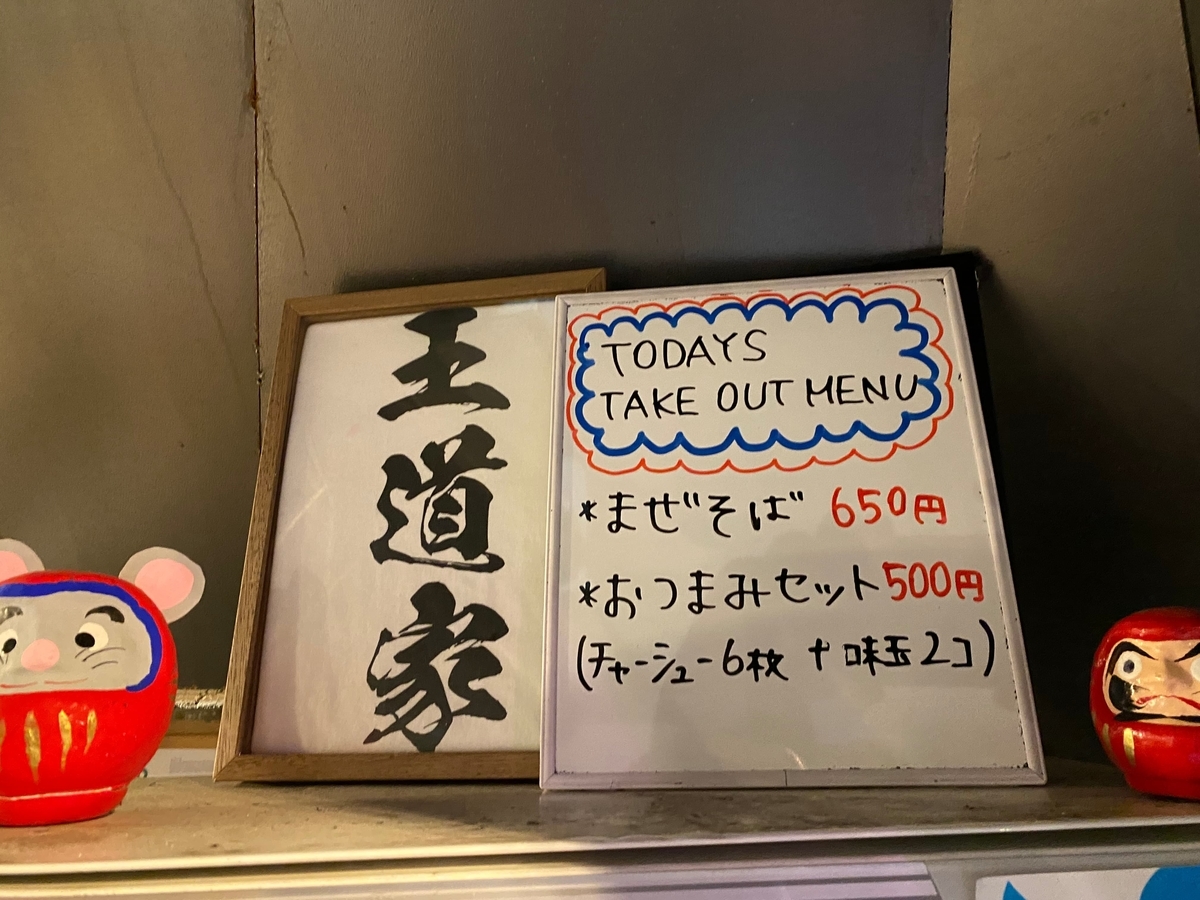 王道家
TODAYS
TAKE OUT MENU
*まぜそば 650円
*おつまみセット500円
(チャーシュー6枚 +味玉2コ)